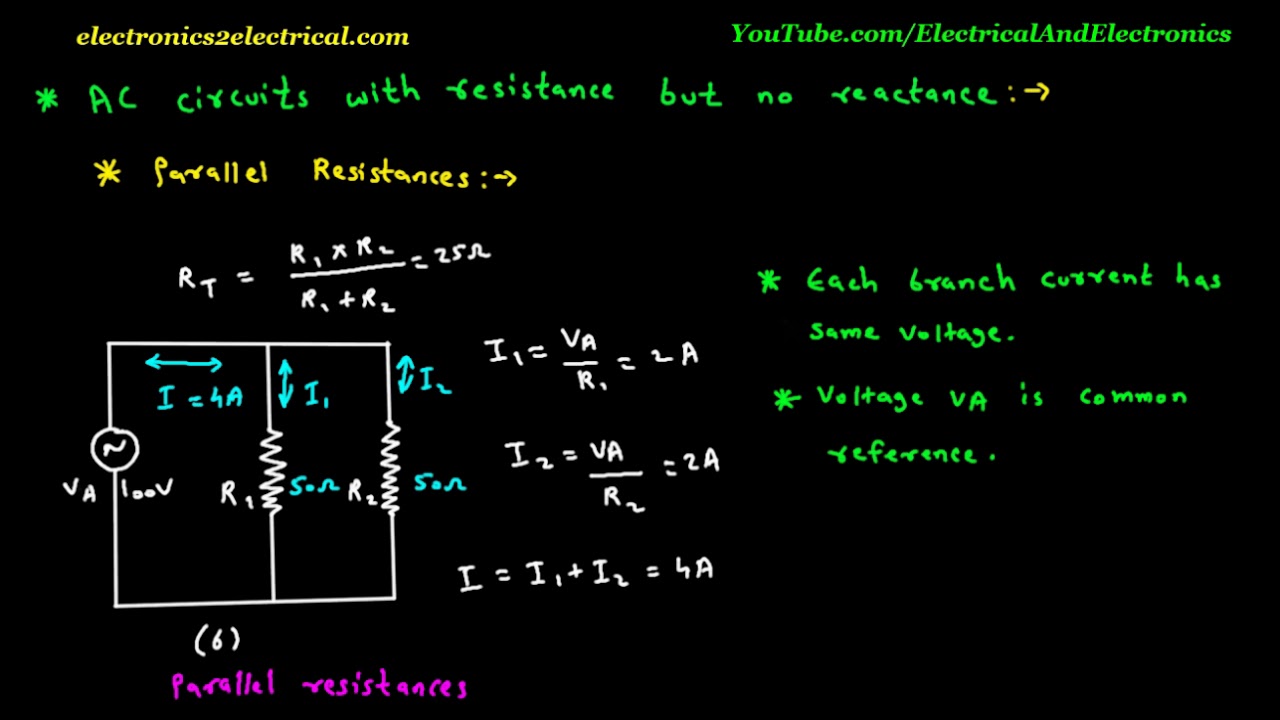 electronics2electrical.com
YouTube.com/ElectricalAndElectronics
* AC circuits with resistance but no reactance:→
* Parallel Resistances:→
R_T = (R₁ × R₂)/(R₁ + R₂) = 25Ω
I = 4A
I₁
I₂
V_A 100V
R₁ 50Ω
R₂ 50Ω
(6)
Parallel resistances
I₁ = VA/R₁ = 2A
I₂ = VA/R₂ = 2A
I = I₁ + I₂ = 4A
* Each branch current has
same voltage.
* Voltage VA is common
reference.